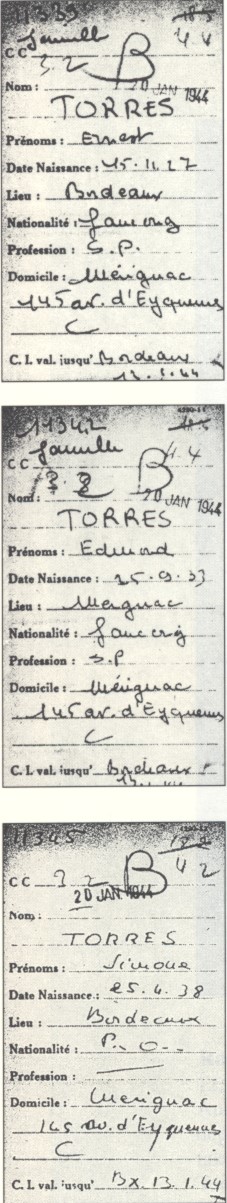 11339
C C Famille 4 4
3. 2 B
Nom : 20 JAN 1944
TORRES
Prénoms : Ernest
Date Naissance : 15. 11. 27
Lieu : Bordeaux
Nationalité :
Profession : S. P.
Domicile : Mérignac
145 av. d'Eyquems
C
C. I. val. jusqu' Bordeaux
13. 1. 44
11342
Famille 4 4
C C B
Nom : 20 JAN 1944
TORRES
Prénoms : Edmond
Date Naissance : 25. 9. 33
Lieu : Merignac
Nationalité :
Profession : S. P
Domicile : Mérignac
145 av. d'Eyquems
C
C. I. val. jusqu' Bordeaux
11345
4 2
C C 3 2 B
20 JAN 1944
Nom :
TORRES
Prénoms : Simone
Date Naissance : 25. 4. 38
Lieu : Bordeaux
Nationalité : P. O.
Profession :
Domicile : Merignac
145 av. d'Eyquems
C
C. I. val. jusqu' Bx. 13. 1. 44